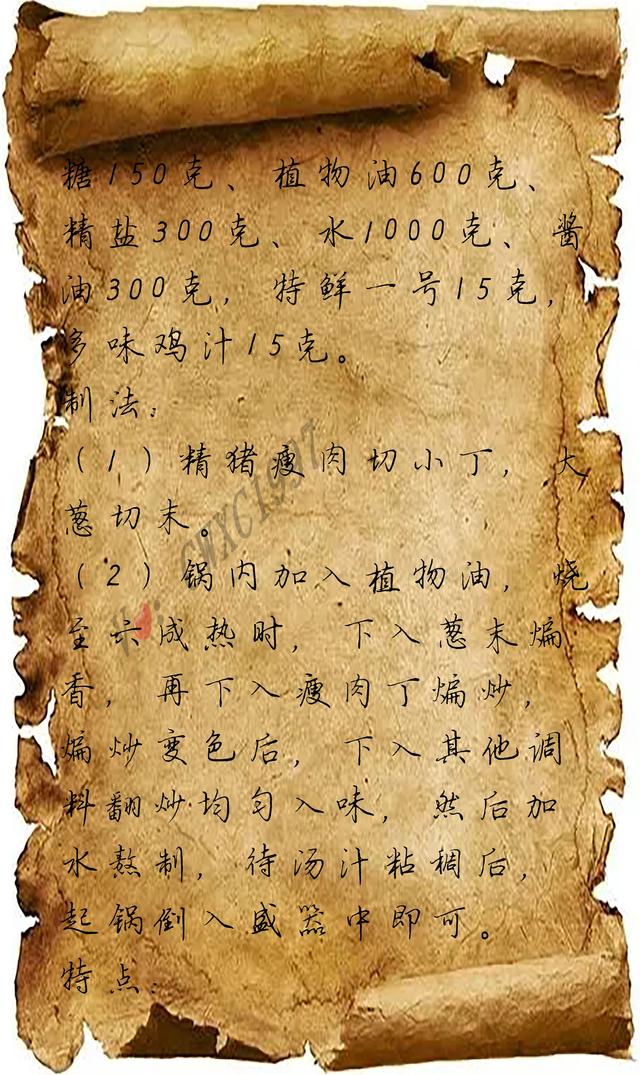 糖150克、植物油600克、
精盐300克、水1000克、酱
油300克，特鲜一号15克，
多味鸡汁15克。
制法：
（1）精猪瘦肉切小丁，大
葱切末。
（2）锅内加入植物油，烧
至六成热时，下入葱末煸
香，再下入瘦肉丁煸炒，
煸炒变色后，下入其他调
料翻炒均匀入味，然后加
水熬制，待汤汁粘稠后，
起锅倒入盛器中即可。
特点：